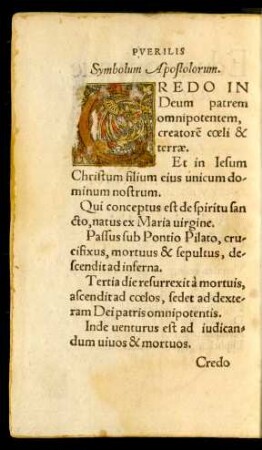 PVERILIS
Symbolum Apostolorum.
CREDO IN
Deum patrem
omnipotentem,
creatorẽ cœli &
terræ.
Et in Iesum
Christum filium eius unicum do-
minum nostrum.
Qui conceptus est de spiritu san
cto, natus ex Maria uirgine.
Passus sub Pontio Pilato, cru-
cifixus, mortuus & sepultus, de-
scendit ad inferna.
Tertia die resurrexit à mortuis,
ascendit ad cœlos, sedet ad dexte-
ram Dei patris omnipotentis.
Inde uenturus est ad iudican-
dum uiuos & mortuos.
Credo